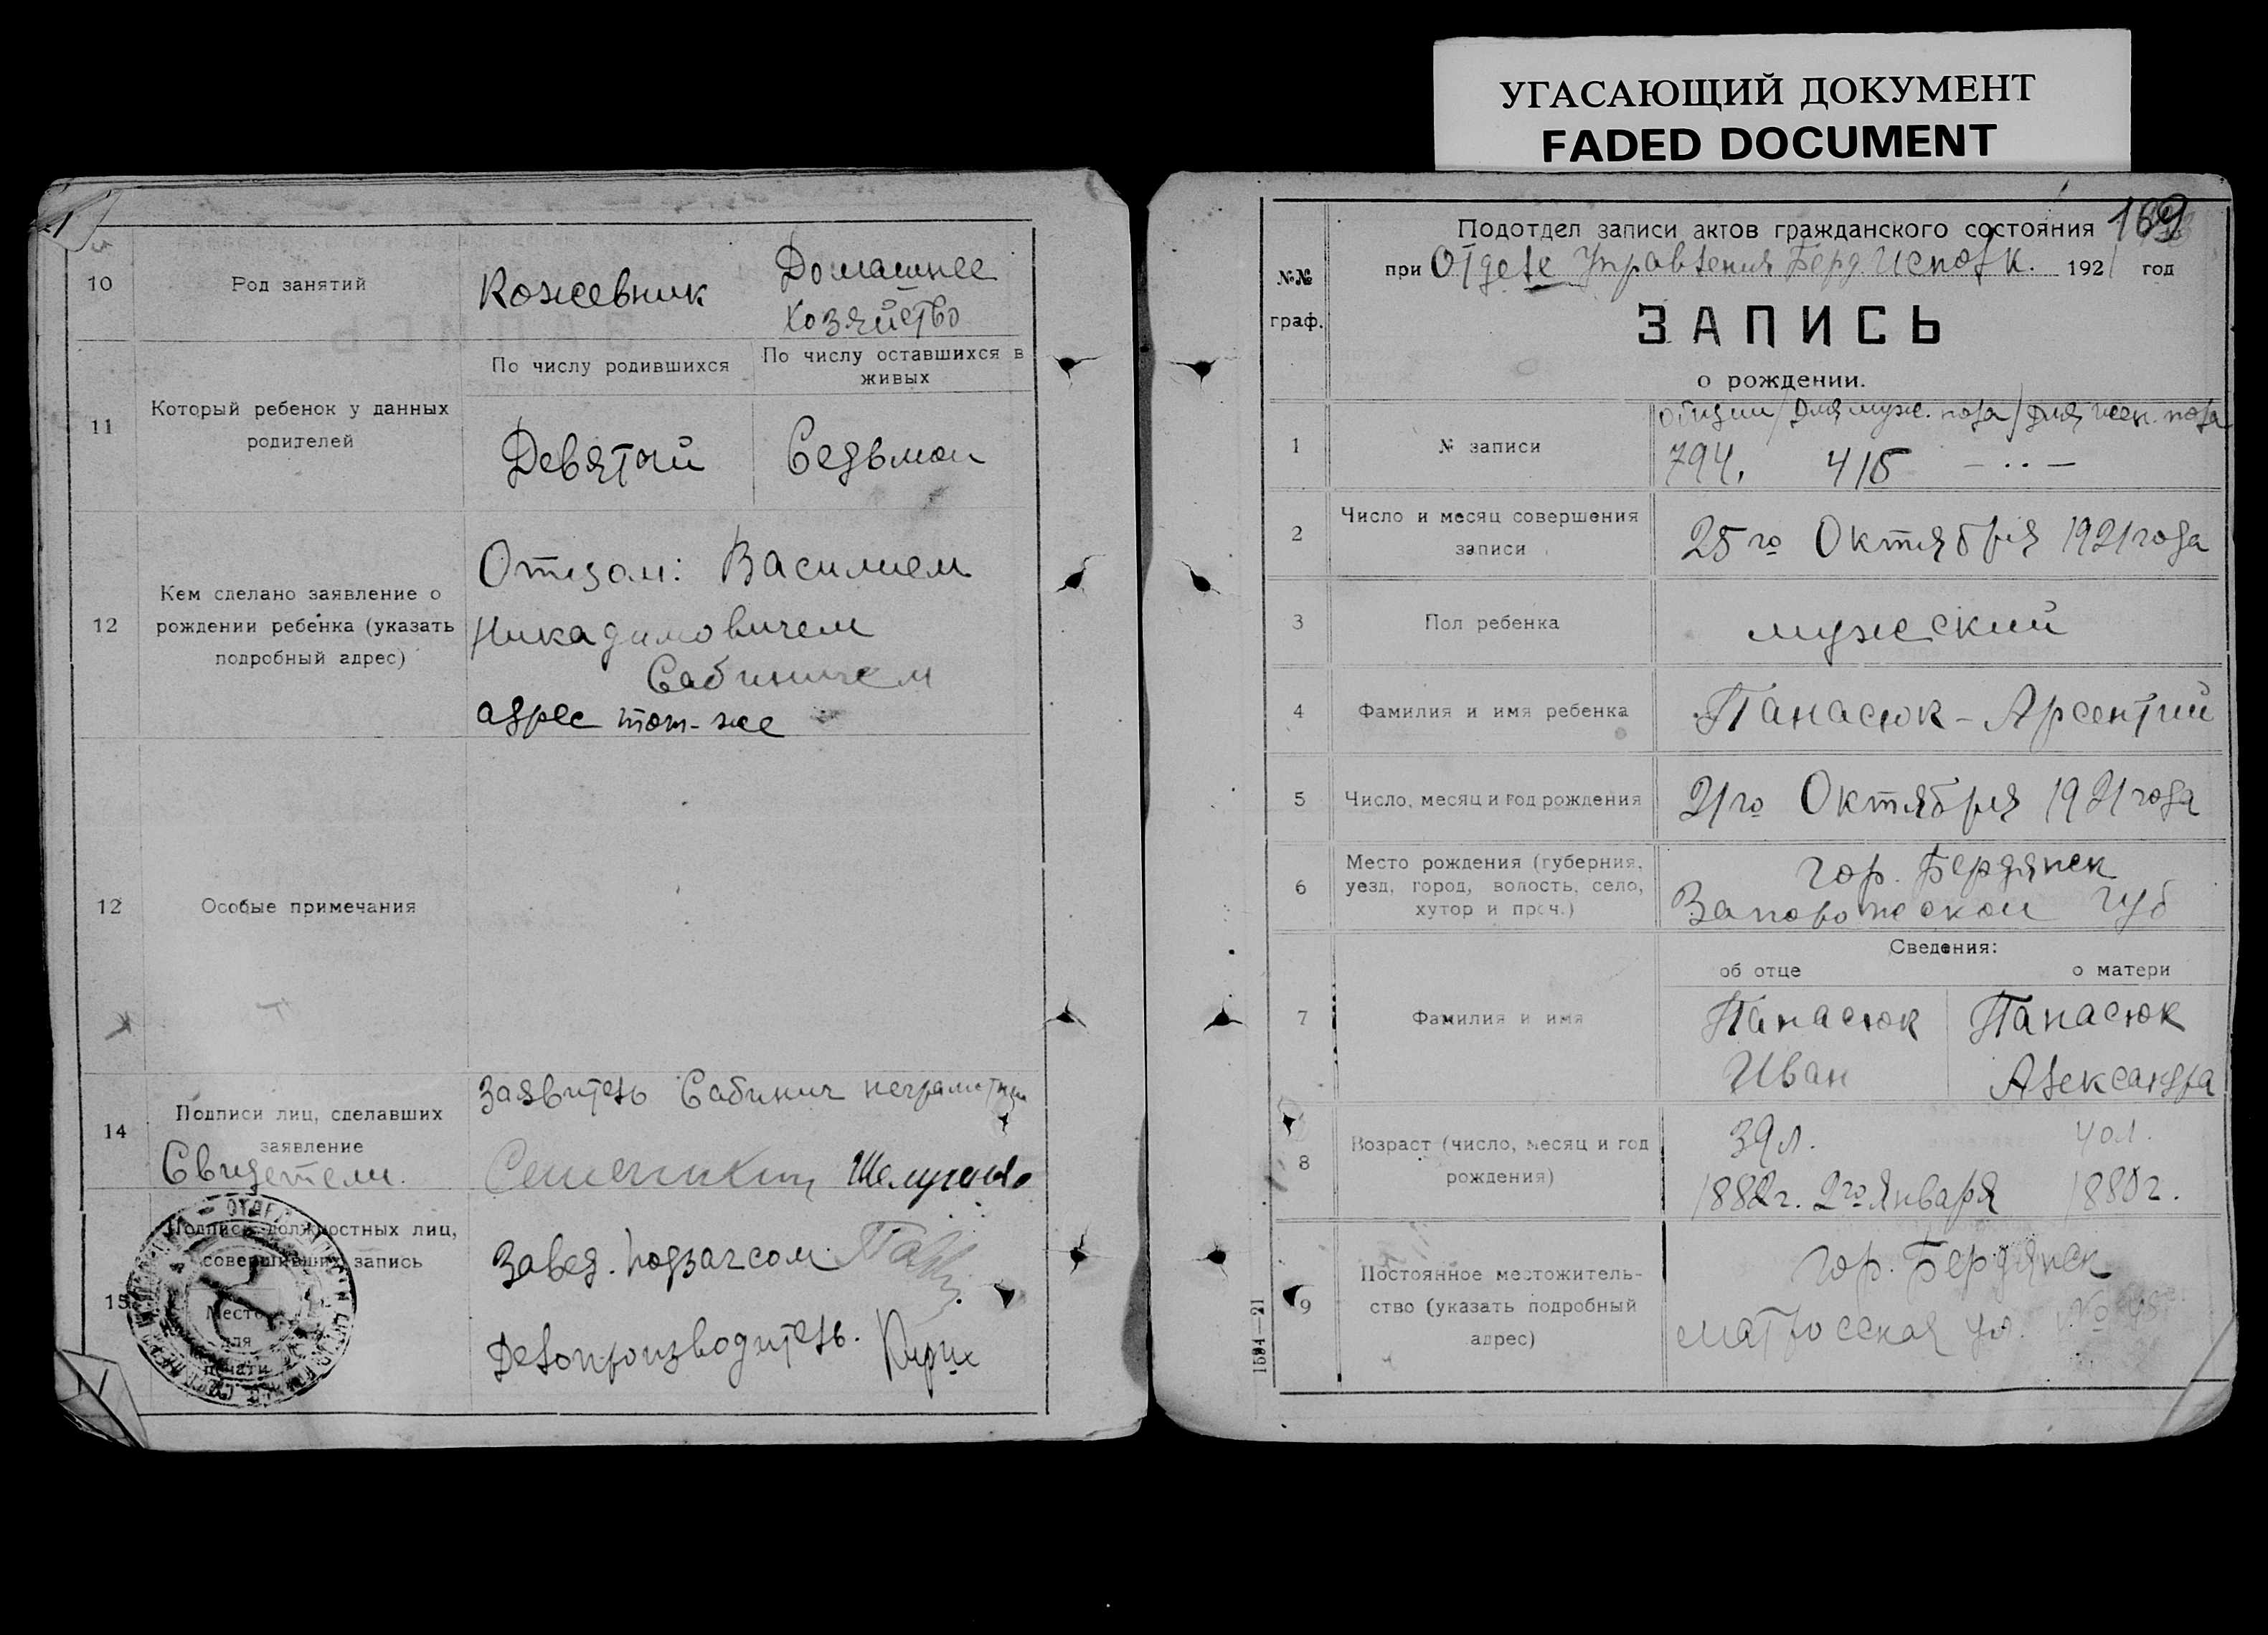 УГАСАЮЩИЙ ДОКУМЕНТ
FADED DOCUMENT
10
Род занятий
Кожевник
Домашнее
хозяйство
11
Который ребенок у данных
родителей
По числу родившихся
По числу оставшихся в
живых
Девятый
Седьмой
12
Кем сделано заявление о
рождении ребенка (указать
подробный адрес)
Отцом: Василием
Никадимовичем
Сабиничем
адрес тот-же
12
Особые примечания
14
Подписи лиц, сделавших
заявление
Свидетели.
Заявитель Сабинич неграмотный
15
Подписи должностных лиц,
совершивших запись
Место
для
печати
Завед. подзагсом
Делопроизводитель.
169
№№
граф.
Подотдел записи актов гражданского состояния
при Отделе Управления Берд Исполк. 1921 год
ЗАПИСЬ
о рождении.
1
№ записи
общий / для муж. пола / для жен. пола
794. 415 — .. —
2
Число и месяц совершения
записи
25го Октября 1921 года
3
Пол ребенка
мужеский
4
Фамилия и имя ребенка
Панасюк - Арсентий
5
Число, месяц и год рождения
21го Октября 1921 года
6
Место рождения (губерния,
уезд, город, волость, село,
хутор и проч.)
гор. Бердянск
Запорожской губ
Сведения:
об отце
о матери
7
Фамилия и имя
Панасюк
Иван
Панасюк
Александра
8
Возраст (число, месяц и год
рождения)
39 л.
1882г. 2го Января
40 л.
1880г.
9
Постоянное местожитель-
ство (указать подробный
адрес)
гор. Бердянск
матросская ул. №
1594—21